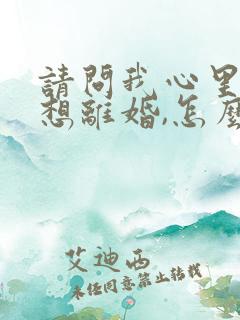 請問我心里
想離婚,怎麼
艾迪西
未任同意禁止转载